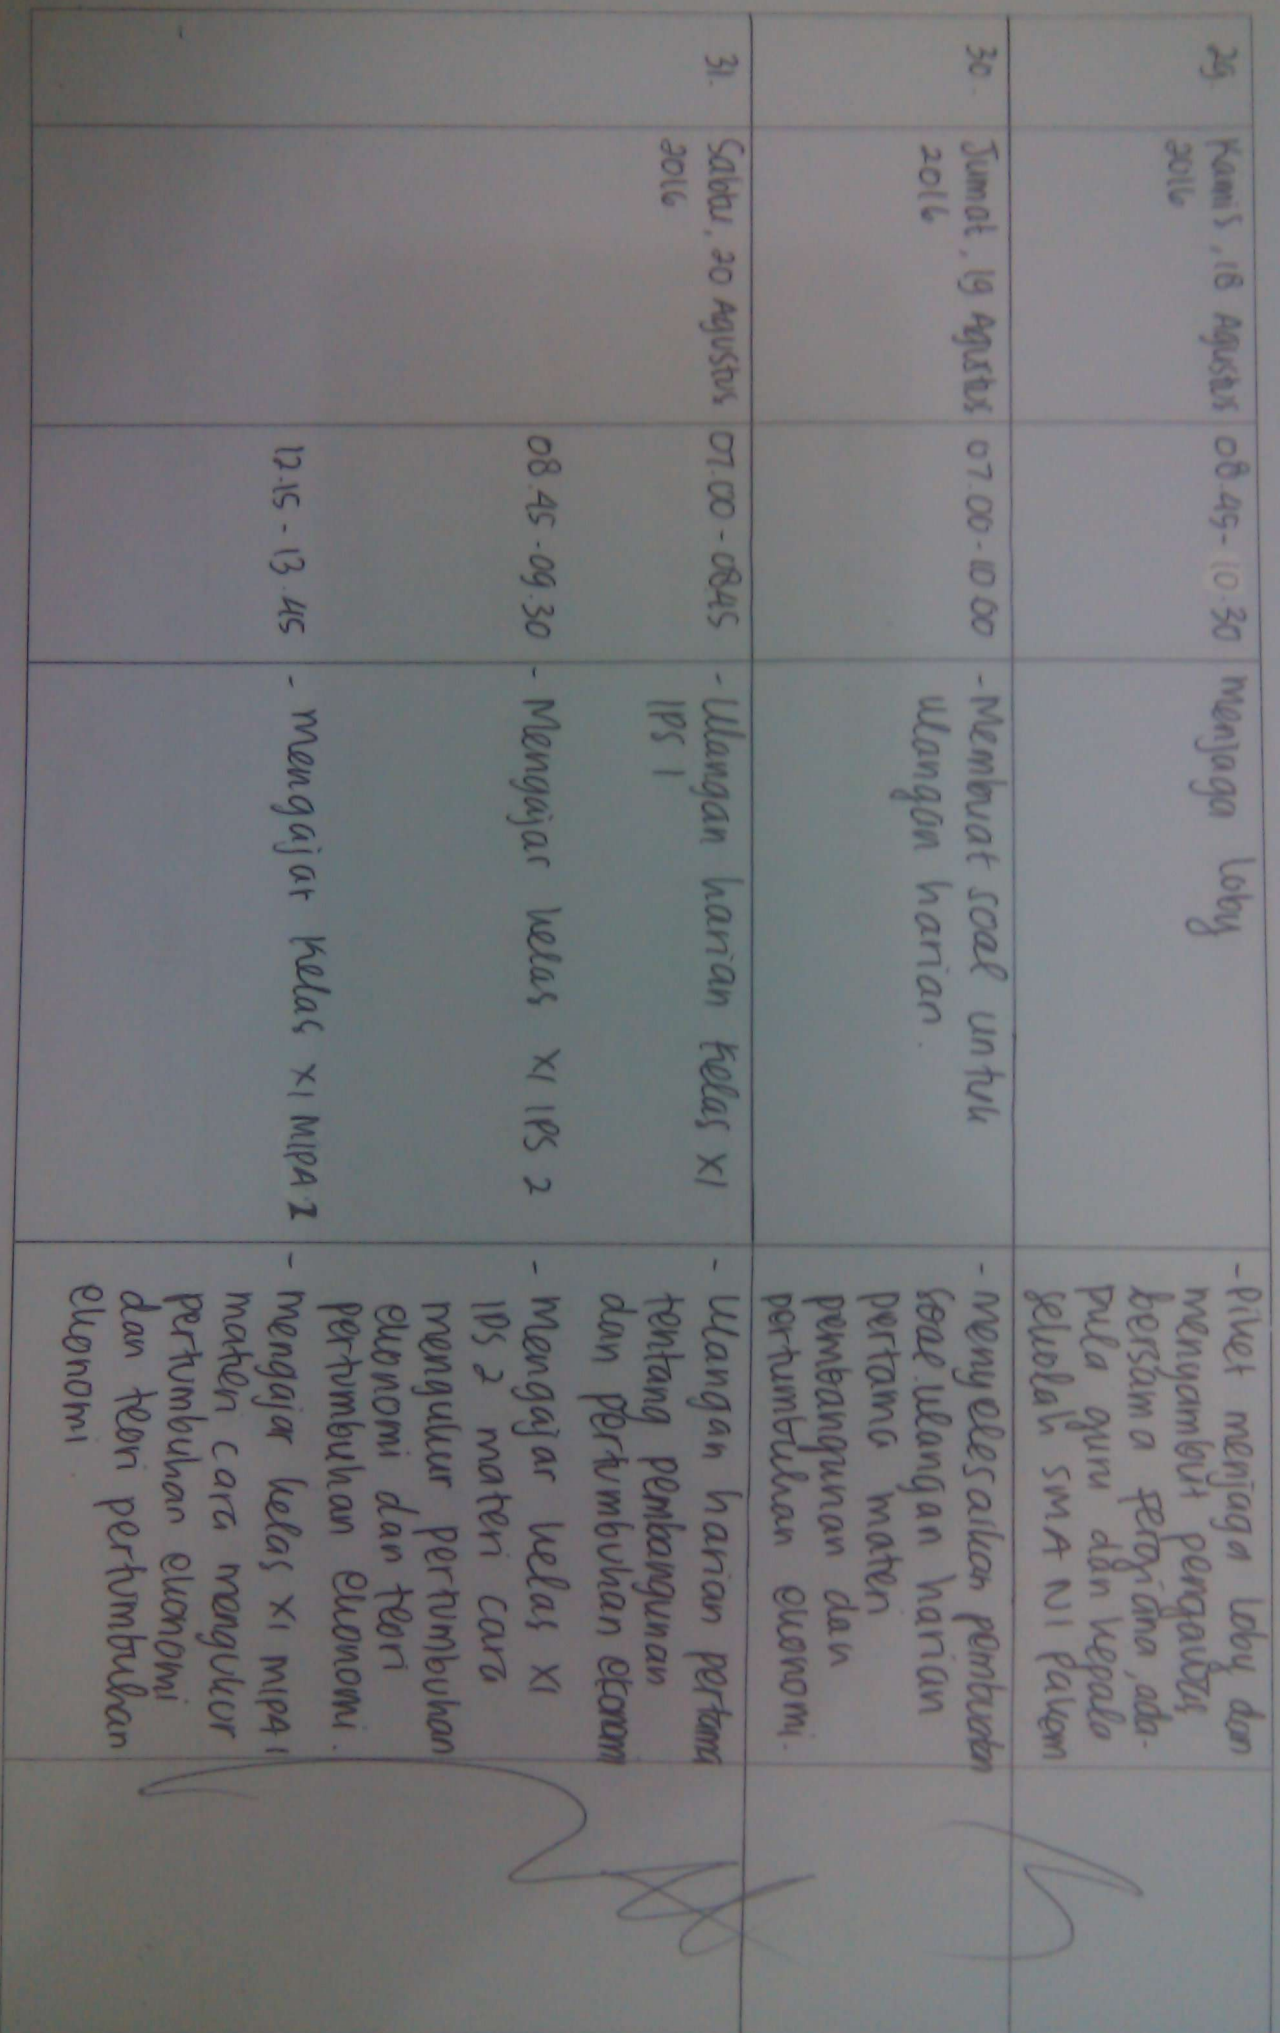 29.
Kamis, 18 Agustus
2016
08.45-10.30
menjaga loby
- Piket menjaga loby dan
menyambut pengawas
bersama Pergiana, ada
pula guru dan kepala
sekolah SMA N 1 Pakem
30.
Jumat, 19 Agustus
2016
07.00-10.00
- Membuat soal untuk
ulangan harian.
- menyelesaikan pembuatan
soal ulangan harian
pertama materi
pembangunan dan
pertumbuhan ekonomi.
31.
Sabtu, 20 Agustus
2016
07.00-08.45
- Ulangan harian kelas XI
IPS 1
- Ulangan harian pertama
tentang pembangunan
dan pertumbuhan ekonomi
08.45-09.30
- Mengajar kelas XI IPS 2
- mengajar kelas XI
IPS 2 materi cara
mengukur pertumbuhan
ekonomi dan teori
pertumbuhan ekonomi.
12.15-13.45
- mengajar kelas XI MIPA
- mengajar kelas XI MIPA 1
materi cara mengukur
pertumbuhan ekonomi
dan teori pertumbuhan
ekonomi